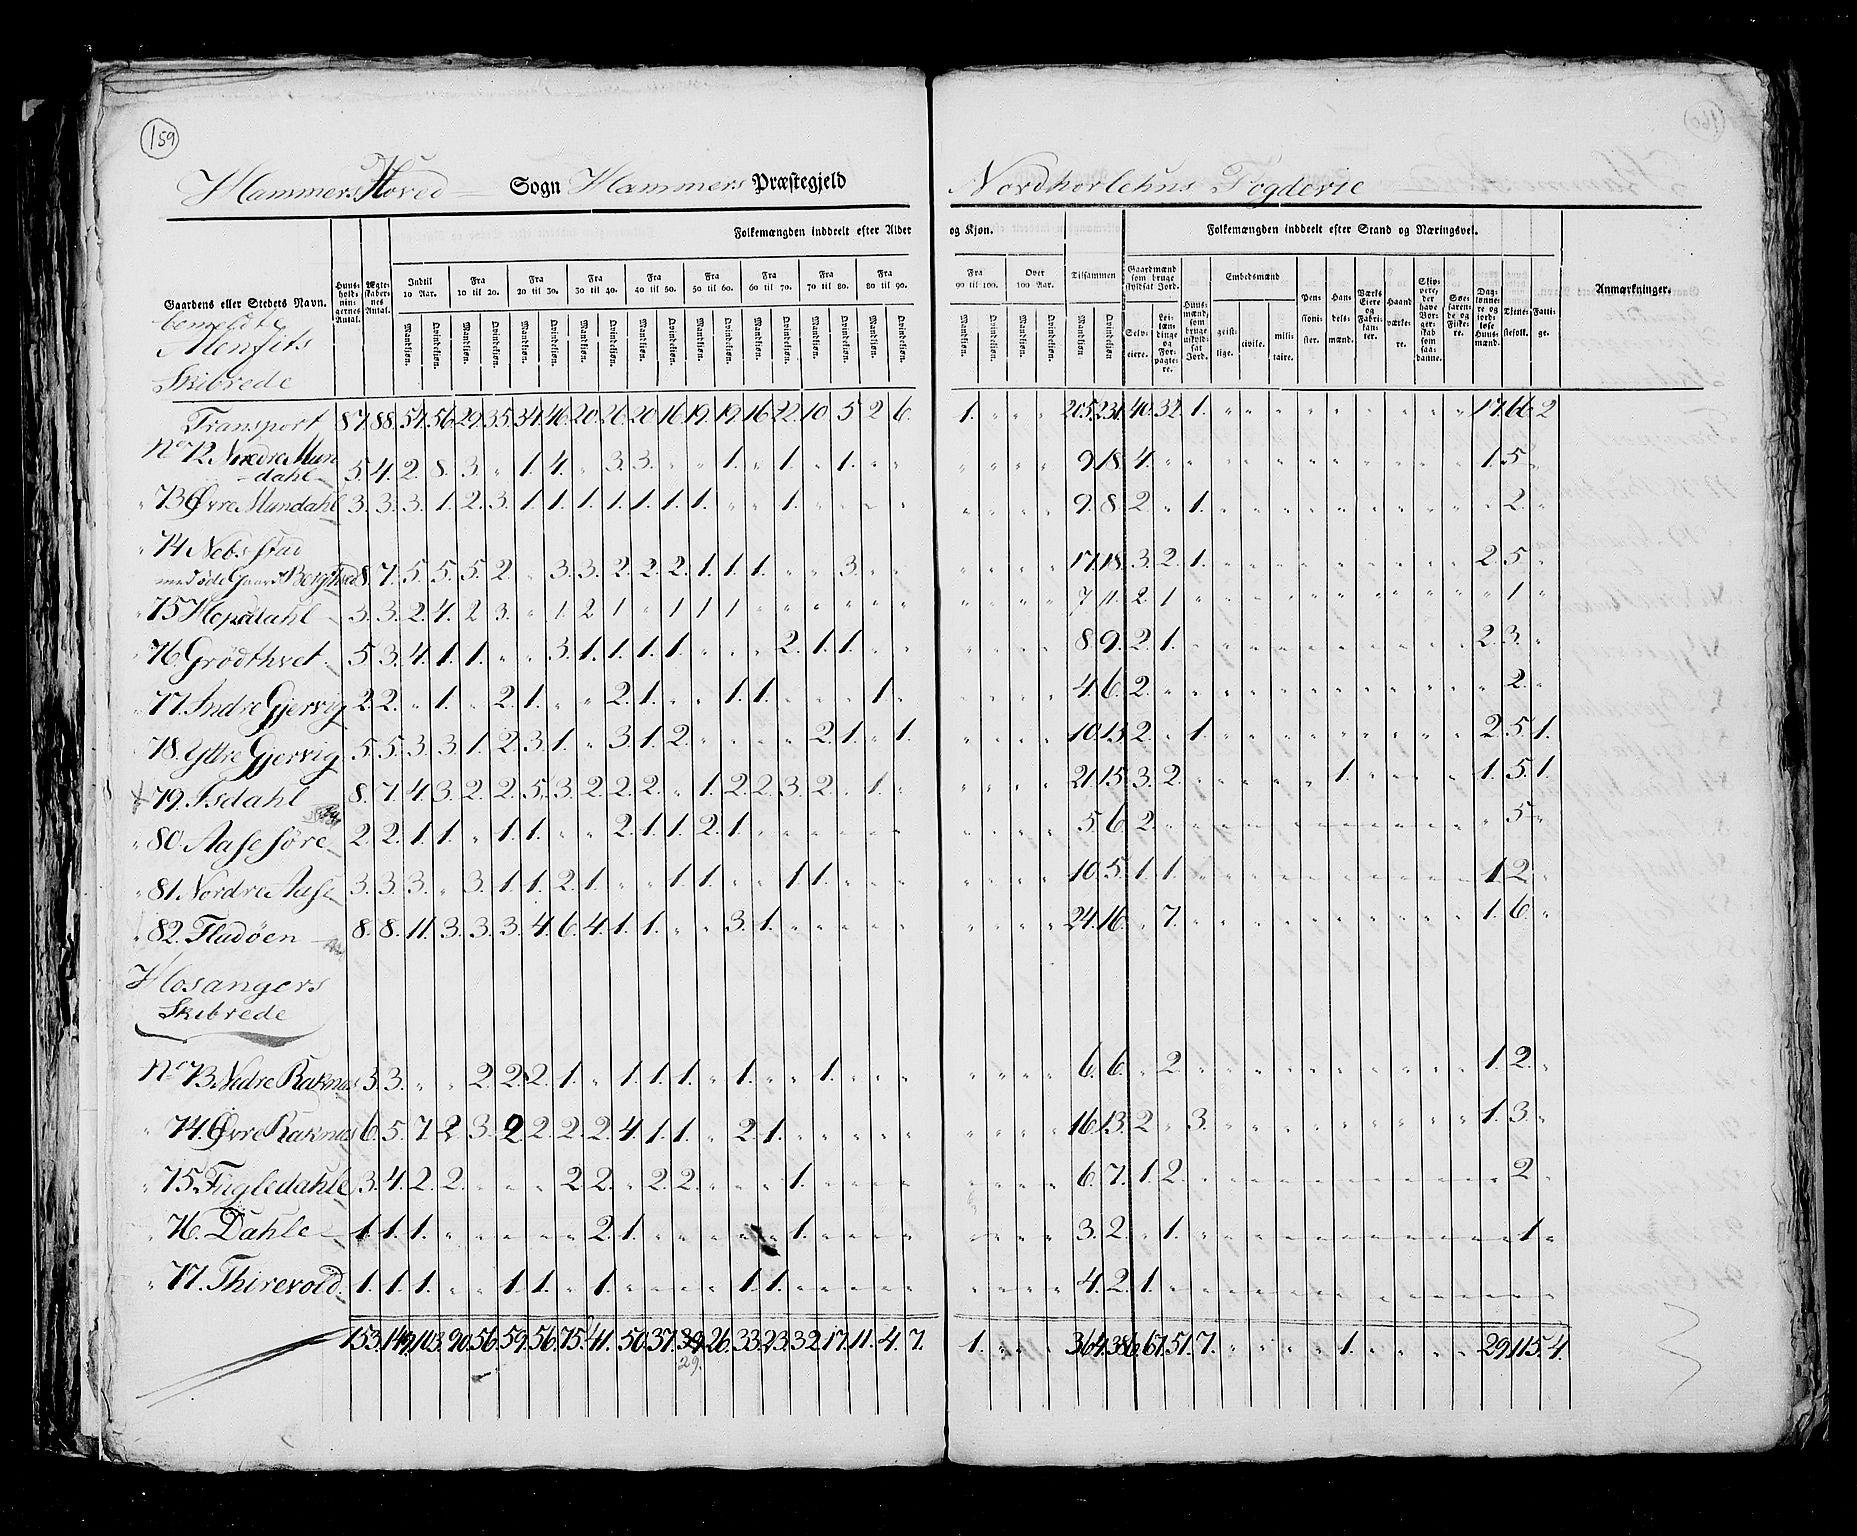 159
Hammers Hoved Sogn Hammers Præstegjeld Nordhorlehns Fogderie
Folkemængden inddeelt efter Alder og Kjøn. Folkemængden inddeelt efter Stand og Næringsvei.
Gaardens eller Stedets Navn. Huus-holdnin-gernes Antal. Ægte-skaber-nes Antal. Indtil 10 Aar. Fra 10 til 20. Fra 20 til 30. Fra 30 til 40. Fra 40 til 50. Fra 50 til 60. Fra 60 til 70. Fra 70 til 80. Fra 80 til 90. Fra 90 til 100. Over 100 Aar. Tilsammen Gaardmænd som bruge skyldsat Jord. Embedsmænd Anmærkninger.
Mandkjøn. Qvindekjøn.
Selv-eiere. Leilændinge og Forpagtere. Huusmænd, som bruge uskyldsat Jord. geist-lige. civile. mili-taire. Pen-sioni-ster. Han-dels-mænd. Værks Eiere og Fabri-kan-ter. Haand værke-re. Skip-pere, der have Bor-ger-skab som saa-danne. Søe-farende og Fiskere. Dag-lønne-re og jord-løse Huus-mænd. Tjene-stefolk. Fatti-ge.
bemeldte
Alenfits
Skibrede
Transport 87. 88. 54. 56. 29. 35. 34. 46. 20. 26. 20. 16. 19. 19. 16. 22. 10. 5 2. 6. 1. " " " 205. 231. 40. 32. 1. 17. 66. 2
No 72. Nedre Mun
dahl 5. 4. 2. 8. 3. " 1. 4. " 3. 3. " " 1. " 1. " 1. " " 9. 18. 4. 1. 5. "
" 73 Øvre Mundahl 3. 3. 3. 1. 2. 3. 1. 1. 1. 1. 1. 1. 1. " " 1. " " " " 9. 8. 2. " 1. " 2. "
" 74 Nebsstad
med øde Gaard Bergthved 8. 7. 5. 5. 5. 2. " 3. 3. 2. 2. 2. 1. 1. 1. " " 3. " " 17. 18. 3. 2. 1. 2. 5. "
" 75 Hopsdahl 3. 3. 2. 4. 2 3. " 1. 2. 1 " 1 1 1 " " " " " " 7 11. 2. 1 " " 1 "
" 76. Grødthvet 5. 3. 4. 1. 1. " " 3. 1. 1. 1. 1. " " " 2. 1. 1. " " 8. 9. 2. 1. 2. 3. "
" 77. Indre Gjervig 2. 2. " 1. " 2. 1. " " 2. 1. " " 1. 1. " " " 1. " 4. 6. 2. " 2. "
" 78. Yttre Gjervig 5. 5. 3. 3. 1. 2. 3. 1. " 3. 1. 2. " " " " 2. 1. " 1. 10. 13. 2. " 1. 2. 5. 1.
79. Isdahl 8. 7. 4. 3. 2. 2. 5. 3. 2. 2. 2. " 1. 2. 2. 3. 2. " 1. " 21. 15. 3. 2. 1. 1. 5. 1.
" 80. Aase søre 2. 2. 1. 1. " 1. 1. " " 2. 1. 1. 2. 1. " " " " " " 5. 6. 2. " 5. "
" 81. Nordre Aase 3. 3. 3. " 3. 1. 1. 2. 1. " " 1. 1. " " 1. 1. " " " 10. 5. 1. 1. 1. 2. "
" 82. Fladøen 8. 8. 11. 3. 3. 3. 4. 6. 4. 1. 1. " " 3. 1. " " " " " 24. 16. " 7. 1. 6. "
Hosangers
Skibrede
No 73. Nedre Raknæs 5. 3. " " 2. 2. 2. 1. " 1. 1. 1. " 1. " " 1. " " " 6. 6. " 2. 1. 2. "
" 74. Øvre Raknæs 6. 5. 7. 2. 3. 2 2. 2. 2. 4. 1. 1. " 2. 1. " " " " " 16. 13. 2 " 3. 1. 3. "
" 75. Fugledahle 3. 4. 2. 2. " " " 2 2. " 2. 2. " " " 1. " " " " 6. 7. 1. 2. " 2. "
" 76. Dahle 1. 1. 1. " " " " " 2. 1. " " " " " 1. " " " " 3. 2. " 1. " 1. "
" 77. Thirevold 1. 1. 1. " " 1. 1. " 1. " " " " 1. 1. " " " " " 4. 2. 1.
153. 149. 103. 90. 56. 59. 56. 75. 41. 50. 37. 39. 26. 33. 23. 32. 17. 11. 4. 7. 1. " " " 364. 386. 67. 51. 7. 1. 29. 115. 4.
29.